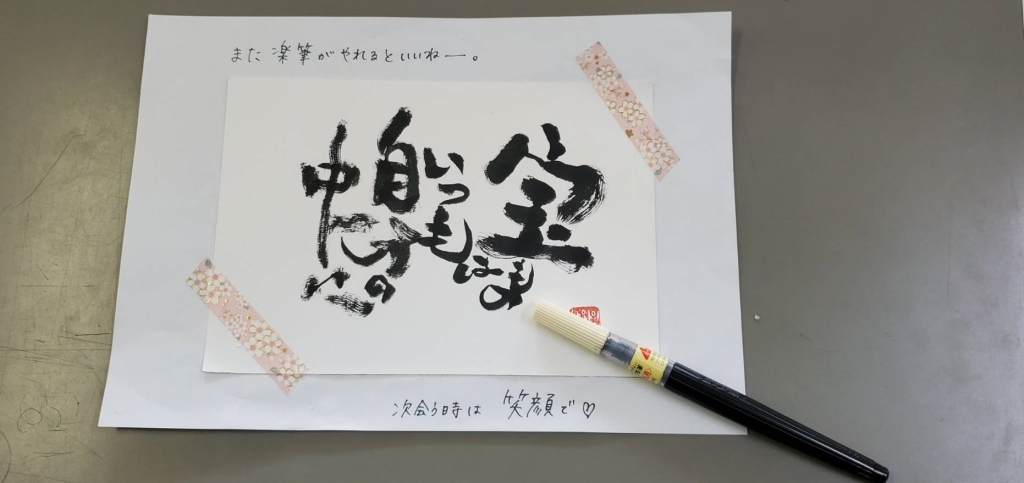 また 楽筆がやれるといいねー。
宝もの
は
いつも
自分の
中に
次会う時は 笑顔で♡